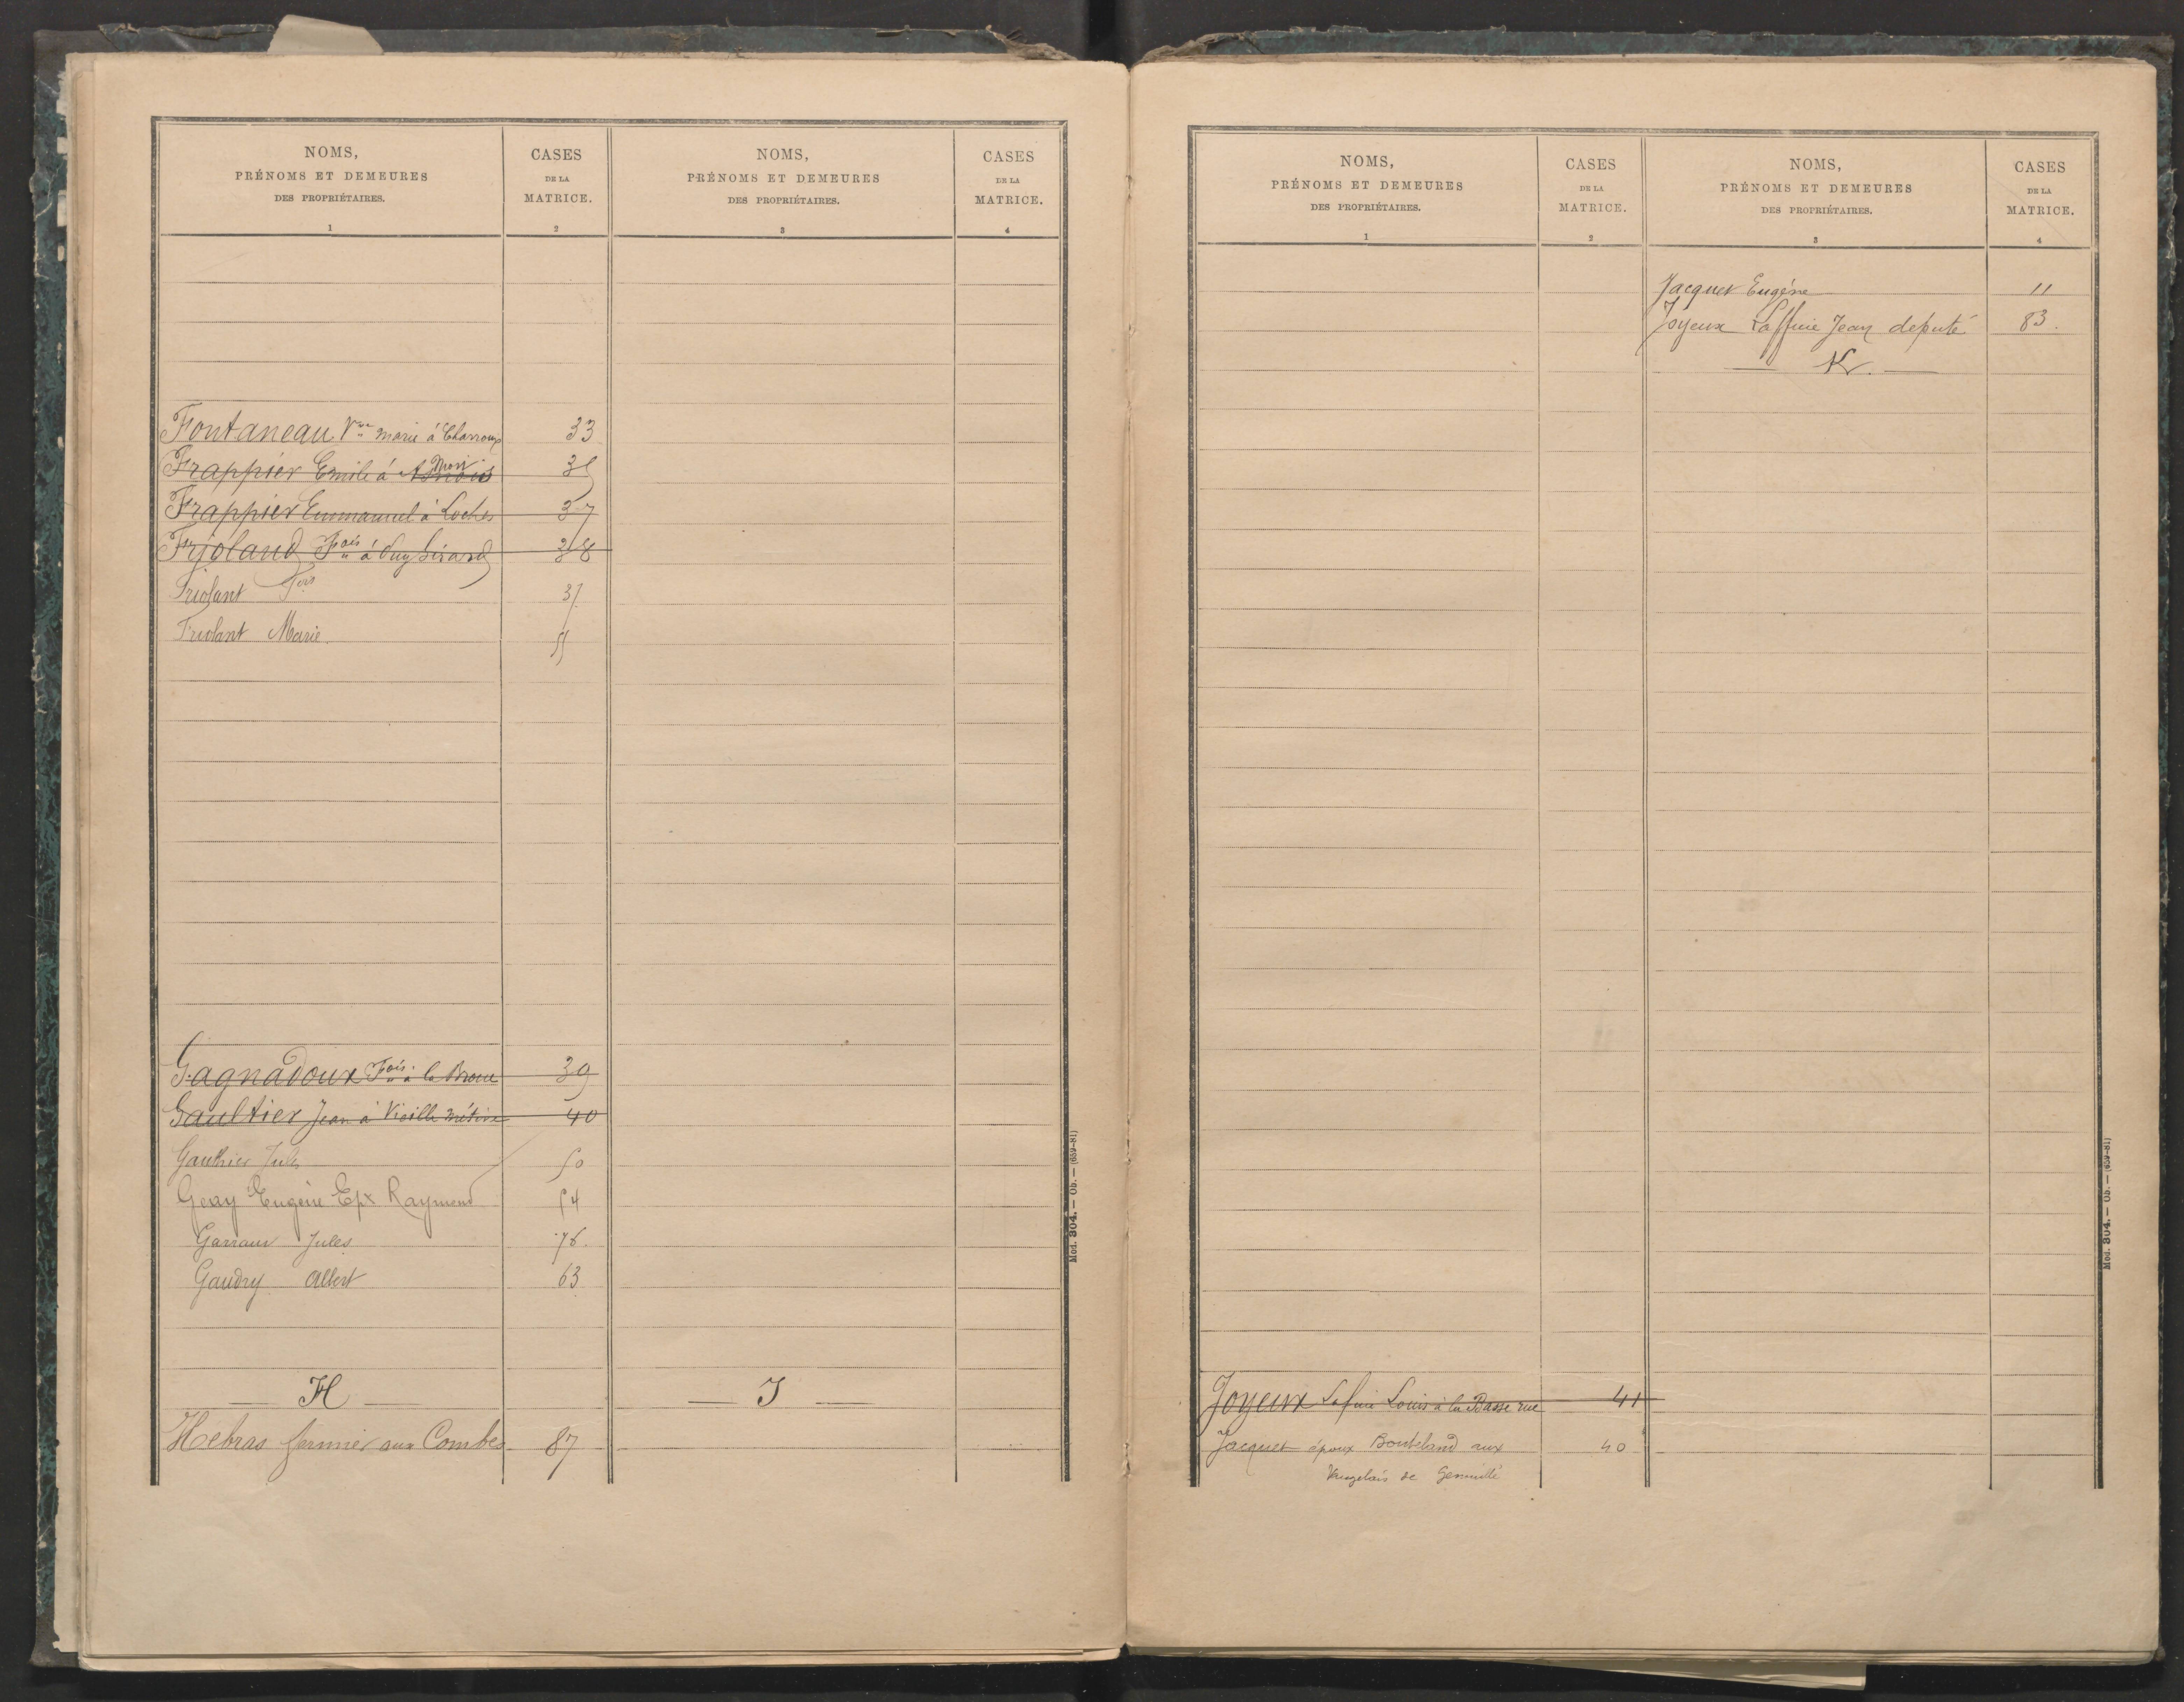 NOMS,
PRÉNOMS ET DEMEURES
DES PROPRIÉTAIRES.
1
CASES
DE LA
MATRICE.
2
NOMS,
PRÉNOMS ET DEMEURES
DES PROPRIÉTAIRES.
3
CASES
DE LA
MATRICE.
4
Fontaneau Vve marie à Charroux 33
Frappier Emile à Asnois
Frappier Emmanuel à Loches 37
Frioland Fois à 38
Friolant Fois 37
Friolant Marie
Gagnadoux Fois à la 39
Gaultier Jean à Vieille métine 40
Gauthier Jules 50
Eugène Epx Raymond 54
Jules
Gaudry Albert 63
H
Hebras fermier aux Combes 87
J
Mod. 304. — Ob. — (659-81)
NOMS,
PRÉNOMS ET DEMEURES
DES PROPRIÉTAIRES.
1
CASES
DE LA
MATRICE.
2
NOMS,
PRÉNOMS ET DEMEURES
DES PROPRIÉTAIRES.
3
CASES
DE LA
MATRICE.
4
Joyeux Lafuie Louis à la Basse rue 41
Jacquet époux aux 40
de
Jacquet Eugène 11
Joyeux Laffuie Jean deputé 83.
K.
Mod. 304. — Ob. — (659-81)